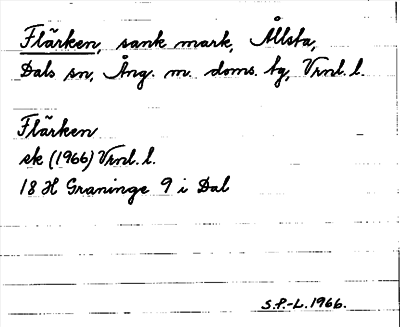 Flärken, sank mark, Ållsta,
Dals sn, Ång. m. doms. tg, Vrnl. l.
Flärken
ek (1966) Vrnl. l.
18 H Graninge 9 i Dal
S.P.-L. 1966.